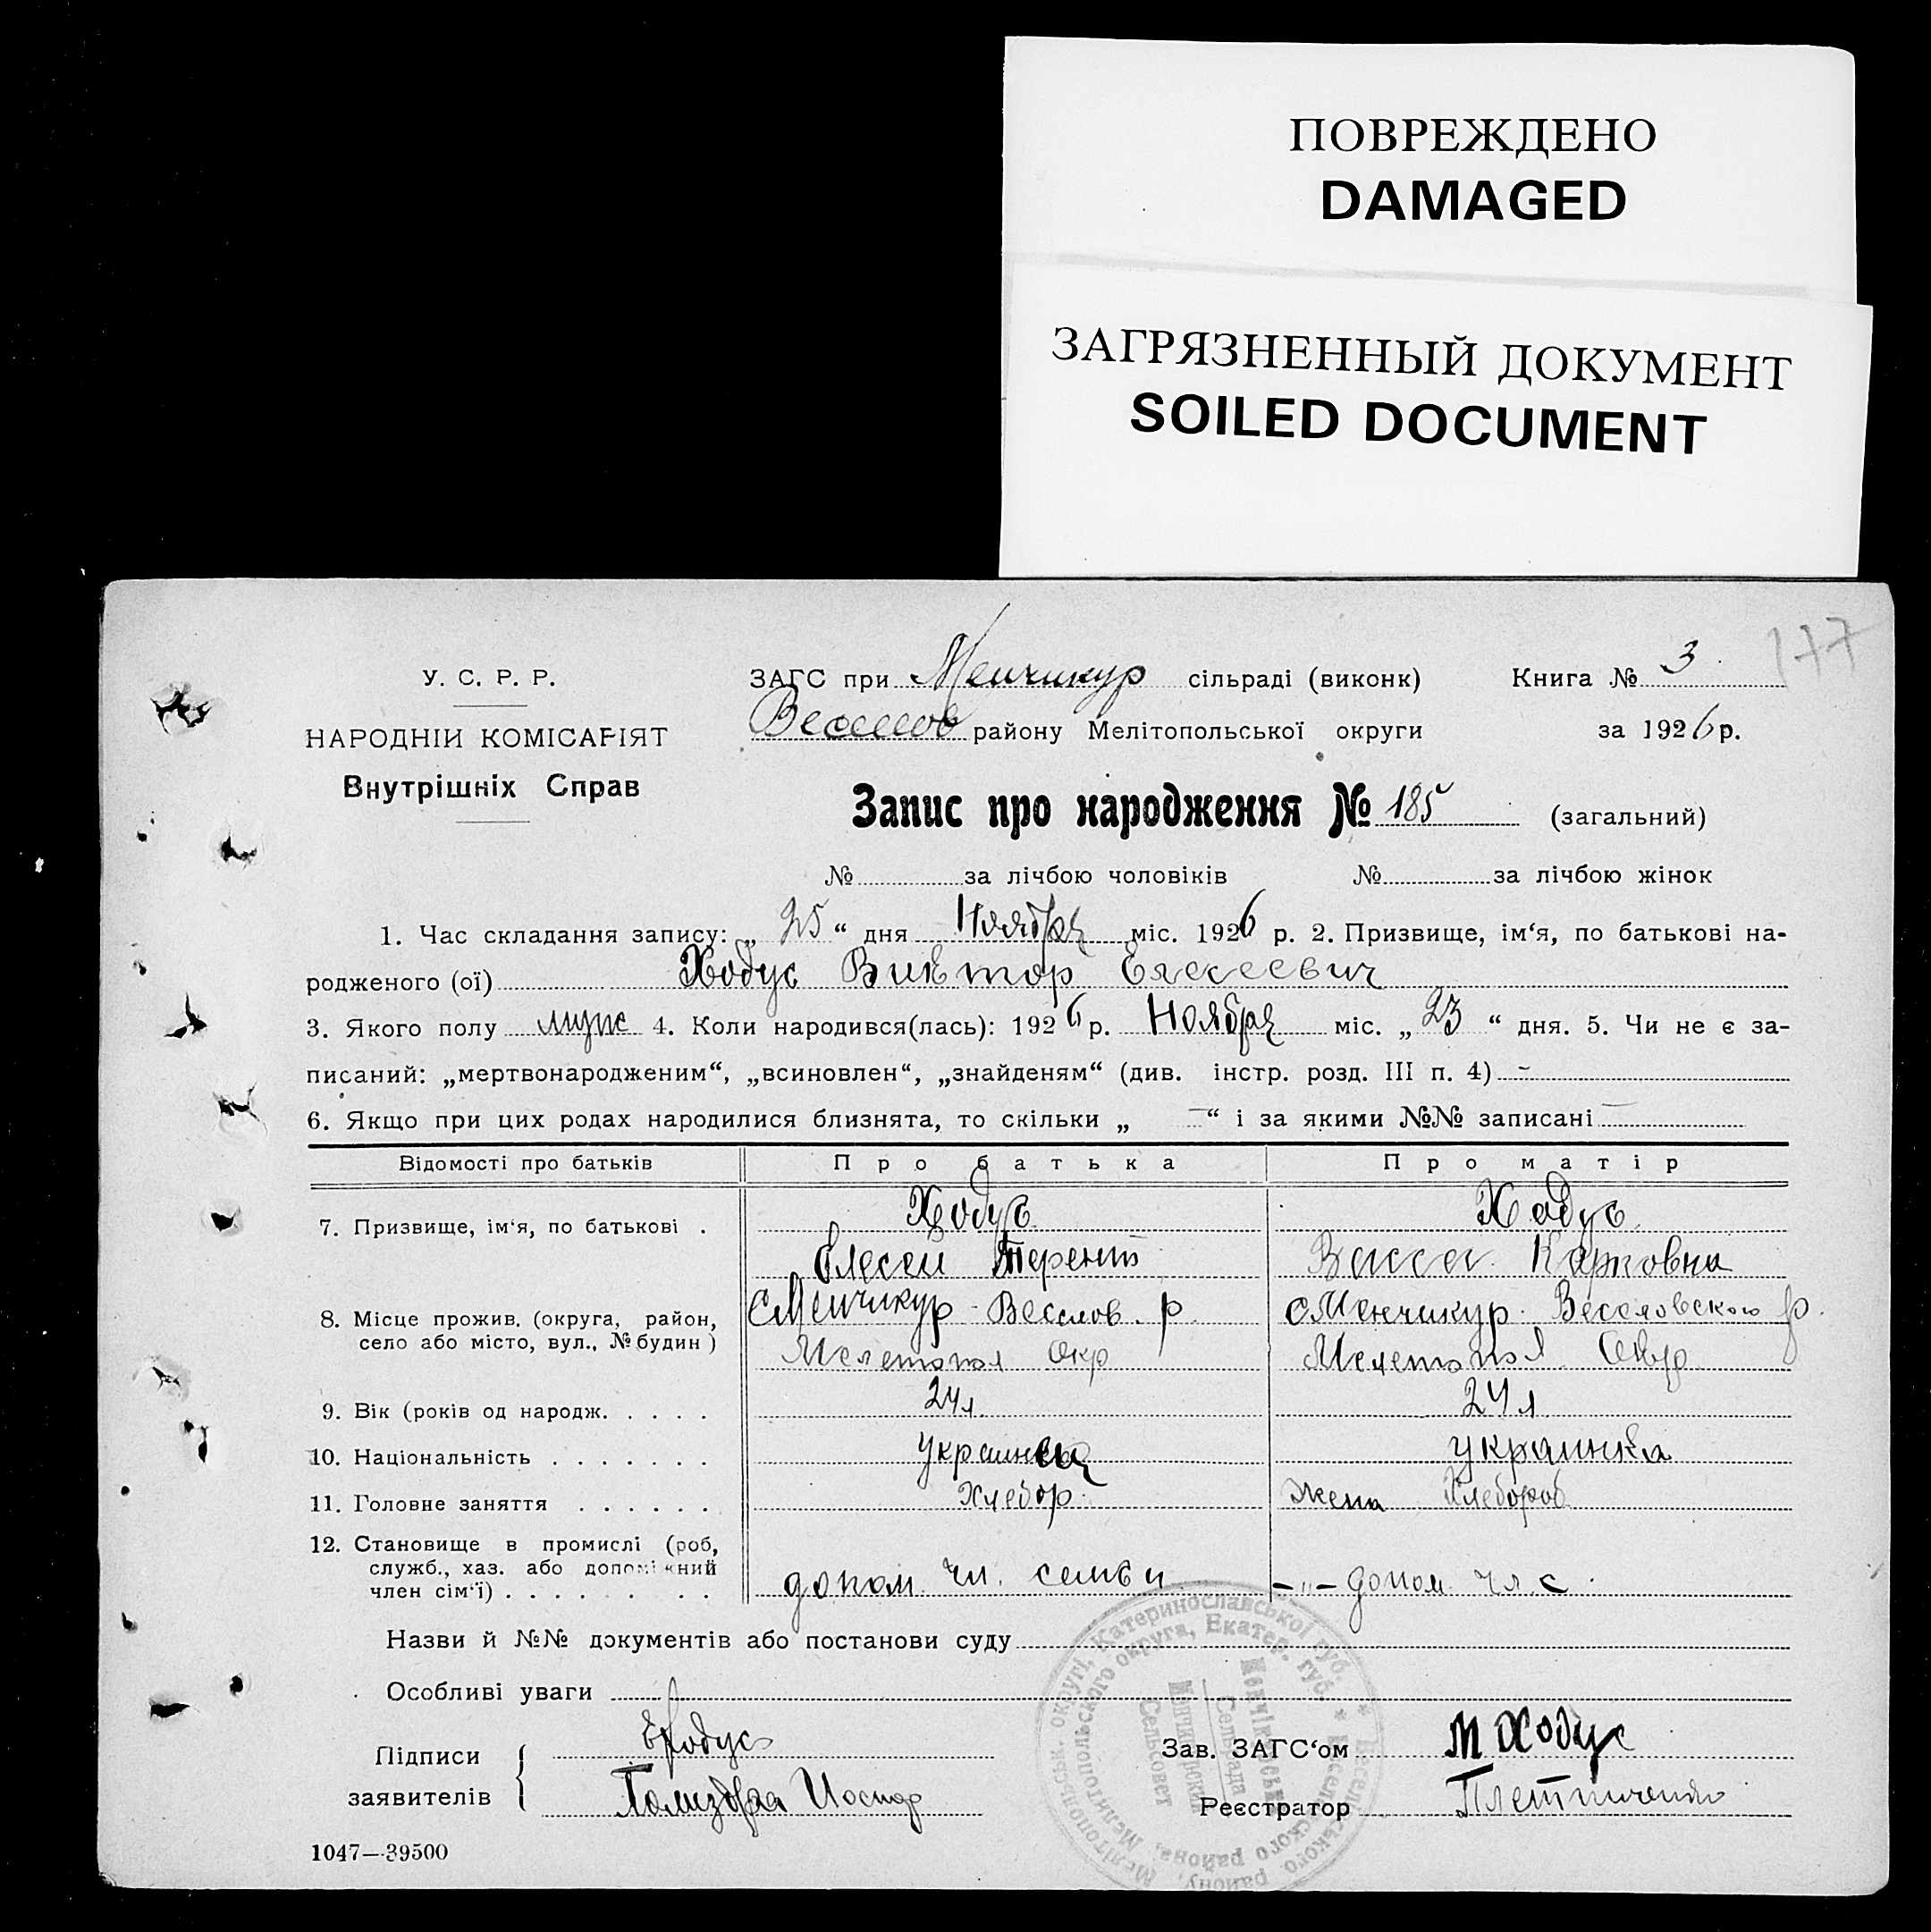 ПОВРЕЖДЕНО
DAMAGED
ЗАГРЯЗНЕННЫЙ ДОКУМЕНТ
SOILED DOCUMENT
177
У. С. Р. Р.
НАРОДНІЙ КОМІСАРІЯТ
Внутрішніх Справ
ЗАГС при Менчикур сільраді (виконк) Книга № 3
Веселов району Мелітопольської округи за 1926 р.
Запис про народження № 185 (загальний)
№ за лічбою чоловіків № за лічбою жінок
1. Час складання запису: „ 25 “ дня Ноября міс. 1926 р. 2. Призвище, ім‘я, по батькові на-
родженого (ої) Ходус Виктор Елесеевич
3. Якого полу муж 4. Коли народився(лась): 1926 р. Ноября міс. „ 23 “ дня. 5. Чи не є за-
писаний: „мертвонародженим“, „всиновлен“, „знайденям“ (див. інстр. розд. III п. 4) -
6. Якщо при цих родах народилися близнята, то скільки „ — “ і за якими №№ записані —
Відомості про батьків Про батька Про матір
7. Призвище, ім‘я, по батькові . Ходус Ходус
Елесей Терент Васса Карповна
8. Місце прожив. (округа, район, с Менчикур Веселов. р. с Менчикур Веселовского р.
село або місто, вул., № будин ) Мелетопол Окр Мелетопол Окр
9. Вік (років од народж. . . . . 24 л. 24 л
10. Національність . . . . . . . украинец украинка
11. Головне заняття . . . . . . Хлебор. Жена Хлебороб
12. Становище в промислі (роб,
служб., хаз. або допоміжний
член сім‘ї) . . . . . . . . допом. чл. семьи -"- допом чл с
Назви й №№ документів або постанови суду
Особливі уваги
Підписи Е Ходус Зав. ЗАГС‘ом М Ходус
заявителів Иосип Реєстратор
1047—39500
Мелітопольськ. округі, Катеринославської губ. * Веселівського району,
Мелитопольского округа, Екатер. губ. * Веселовского района,
Менчікурська
Сельрада
Менчикурский
Сельсовет